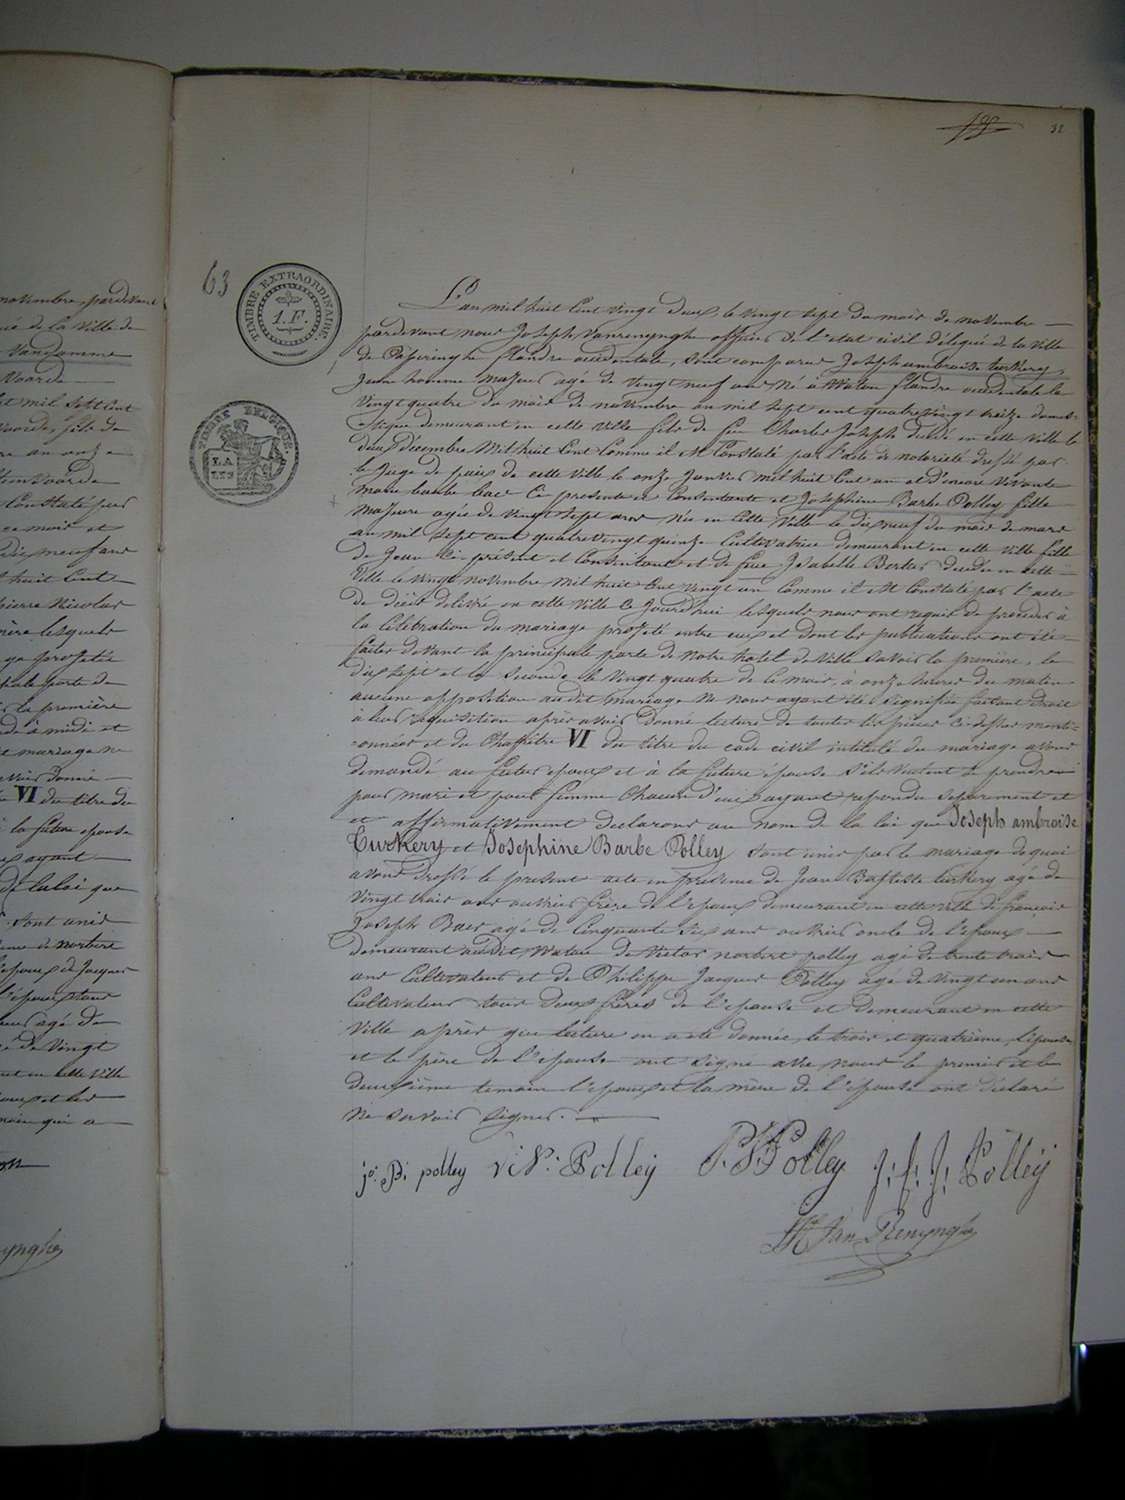 novembre, pardevant
de la Ville de
Vandamme
Voorde
mil sept cent
Constaté par
ce mois et
dix neuf ans
huit Cent
pierre Nicolas
mère lesquels
projetée
porte de
la première
à midi et
mariage ne
VI du titre du
la future epouse
ayant
de la loi que
Sont unis
de norbert
l'epoux et Jacques
agé de
de Vingt
en cette Ville
qui a
32
63
TIMBRE EXTRAORDINAIRE.
1.F.
TIMBRE BELGIQUE.
LA
LYS
L'an mil huit Cent vingt deux le vingt sept du mois de novembre
pardevant nous Joseph Vanrenynghe officier de l'etat civil délégué de la Ville
de Poperinghe flandre occidentale, sont comparus Joseph ambroise turkery
Jeune homme majeur agé de vingt neuf ans Né à Watou flandre occidentale le
Vingt quatre du mois de novembre an mil sept cent quatre vingt treize domes
tique demeurant en cette Ville fils de feu Charles Joseph décédé en cette Ville le
deux décembre Mil huit Cent Comme il est Constaté par l'acte de notorieté dressé par
le Juge de paix de cette Ville le onze Janvier mil huit Cent un et d'encore Vivante
marie barbe baes Ci presente et Consentante et Josephine Barbe Polley fille
majeure agée de Vingt sept ans Née en Cette Ville le dix neuf du mois de mars
an mil Sept cent quatre vingt quinze Cultivatrice demeurant en cette Ville fille
de Jean Ci présent et Consentant et de feue Isabelle Decédée en cette
Ville le vingt novembre mil huit Cent vingt un Comme il est Constaté par l'acte
de décès délivré en cette Ville Ce Jourd'hui lesquels nous ont requis de proceder à
la Célébration du mariage projeté entre eux et dont les publications ont été
faites devant la principale porte de Notre hotel de Ville Savoir la première, le
dix sept et la Seconde le Vingt quatre de Ce mois, à onze heures du matin
aucune opposition audit mariage Ne nous ayant été signifiée faisant droit
à leur requisition après avoir donné lecture de toutes les pièces Ci-dessus menti-
onnées et du Chapitre VI du titre du code civil intitulé du mariage avons
demandé au futur epoux et à la future épouse S'ils Veulent se prendre
pour mari et pour femme Chacun d'eux ayant repondu separement et
et affirmativement declarons au nom de la loi que Joseph ambroise
Turkery et Josephine Barbe Polley Sont unis par le mariage de quoi
avons dressé le present acte en présence de Jean Baptiste turkery agé de
Vingt trois ans ouvrier frère de l'epoux demeurant en cette ville de françois
Joseph Baes agé de Cinquante Six ans ouvrier oncle de l'epoux
demeurant audit Watou de Victor norbert polley agé de trente trois
ans Cultivateur et de Philippe Jacques Polley agé de vingt un ans
Cultivateur tous deux frères de l'epouse et demeurant en cette
Ville après que lecture en a été donnée, le trois et quatrième, l'épouse
et le père de l'epouse ont signé avec nous le premier et le
deuxième temoin l'epoux et la mère de l'epoux ont déclaré
Ne Savoir signer.
jo: B: polley V:N: Polley P.J Polley J: f: J: Polley
Jh Van Renynghe